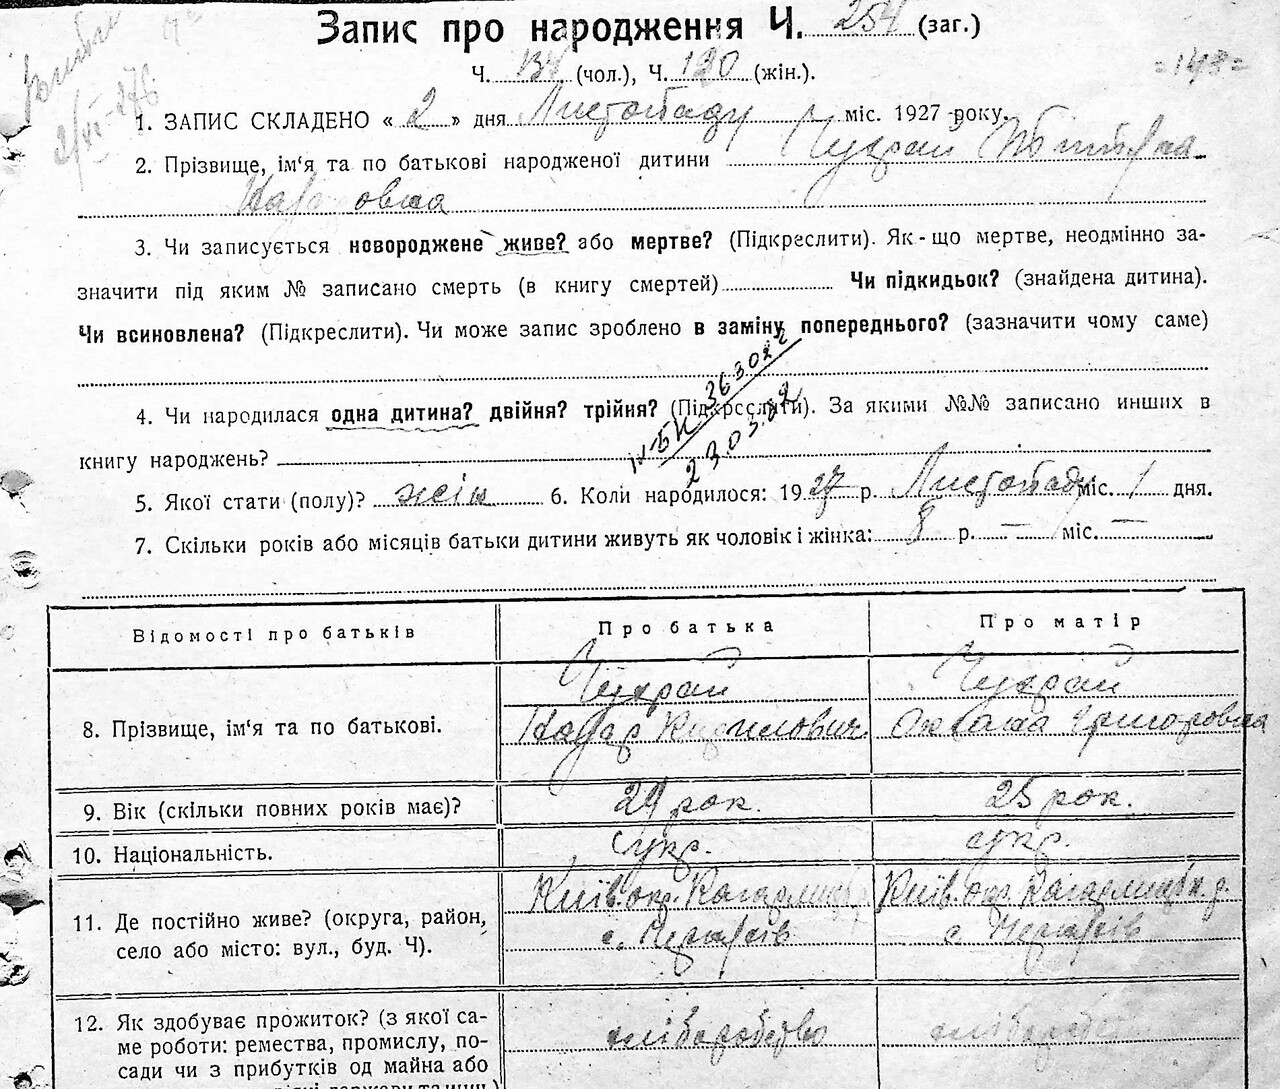 Запис про народження Ч. 254 (заг.)
Ч. 134 (чол.), Ч. 120 (жін.).
=143=
1. ЗАПИС СКЛАДЕНО « 2 » дня Листопаду міс. 1927 року.
2. Прізвище, ім'я та по батькові народженої дитини Чухрай
Назаровна
3. Чи записується новороджене живе? або мертве? (Підкреслити). Як-що мертве, неодмінно за-
значити під яким № записано смерть (в книгу смертей) Чи підкидьок? (знайдена дитина).
Чи всиновлена? (Підкреслити). Чи може запис зроблено в заміну попереднього? (зазначити чому саме)
4. Чи народилася одна дитина? двійня? трійня? (Підкреслити). За якими №№ записано инших в
книгу народжень?
IV-БК 363022
23.03.82
5. Якої стати (полу)? жін 6. Коли народилося: 1927 р. Листопаду міс. 1 дня.
7. Скільки років або місяців батьки дитини живуть як чоловік і жінка: 8 р. — міс. —
Відомості про батьків Про батька Про матір
8. Прізвище, ім'я та по батькові. Чухрай Чухрай
Назар Кирилович Оксана Григоровна
9. Вік (скільки повних років має)? 29 рок. 25 рок.
10. Національність. Укр. укр.
11. Де постійно живе? (округа, район, Київ. окр. Кагарлицьк. Київ. окр. Кагарлицьк. р.
село або місто: вул., буд. Ч). с. Черняхів с. Черняхів
12. Як здобуває прожиток? (з якої са- хліборобство хліборобство
ме роботи: ремества, промислу, по-
сади чи з прибутків од майна або